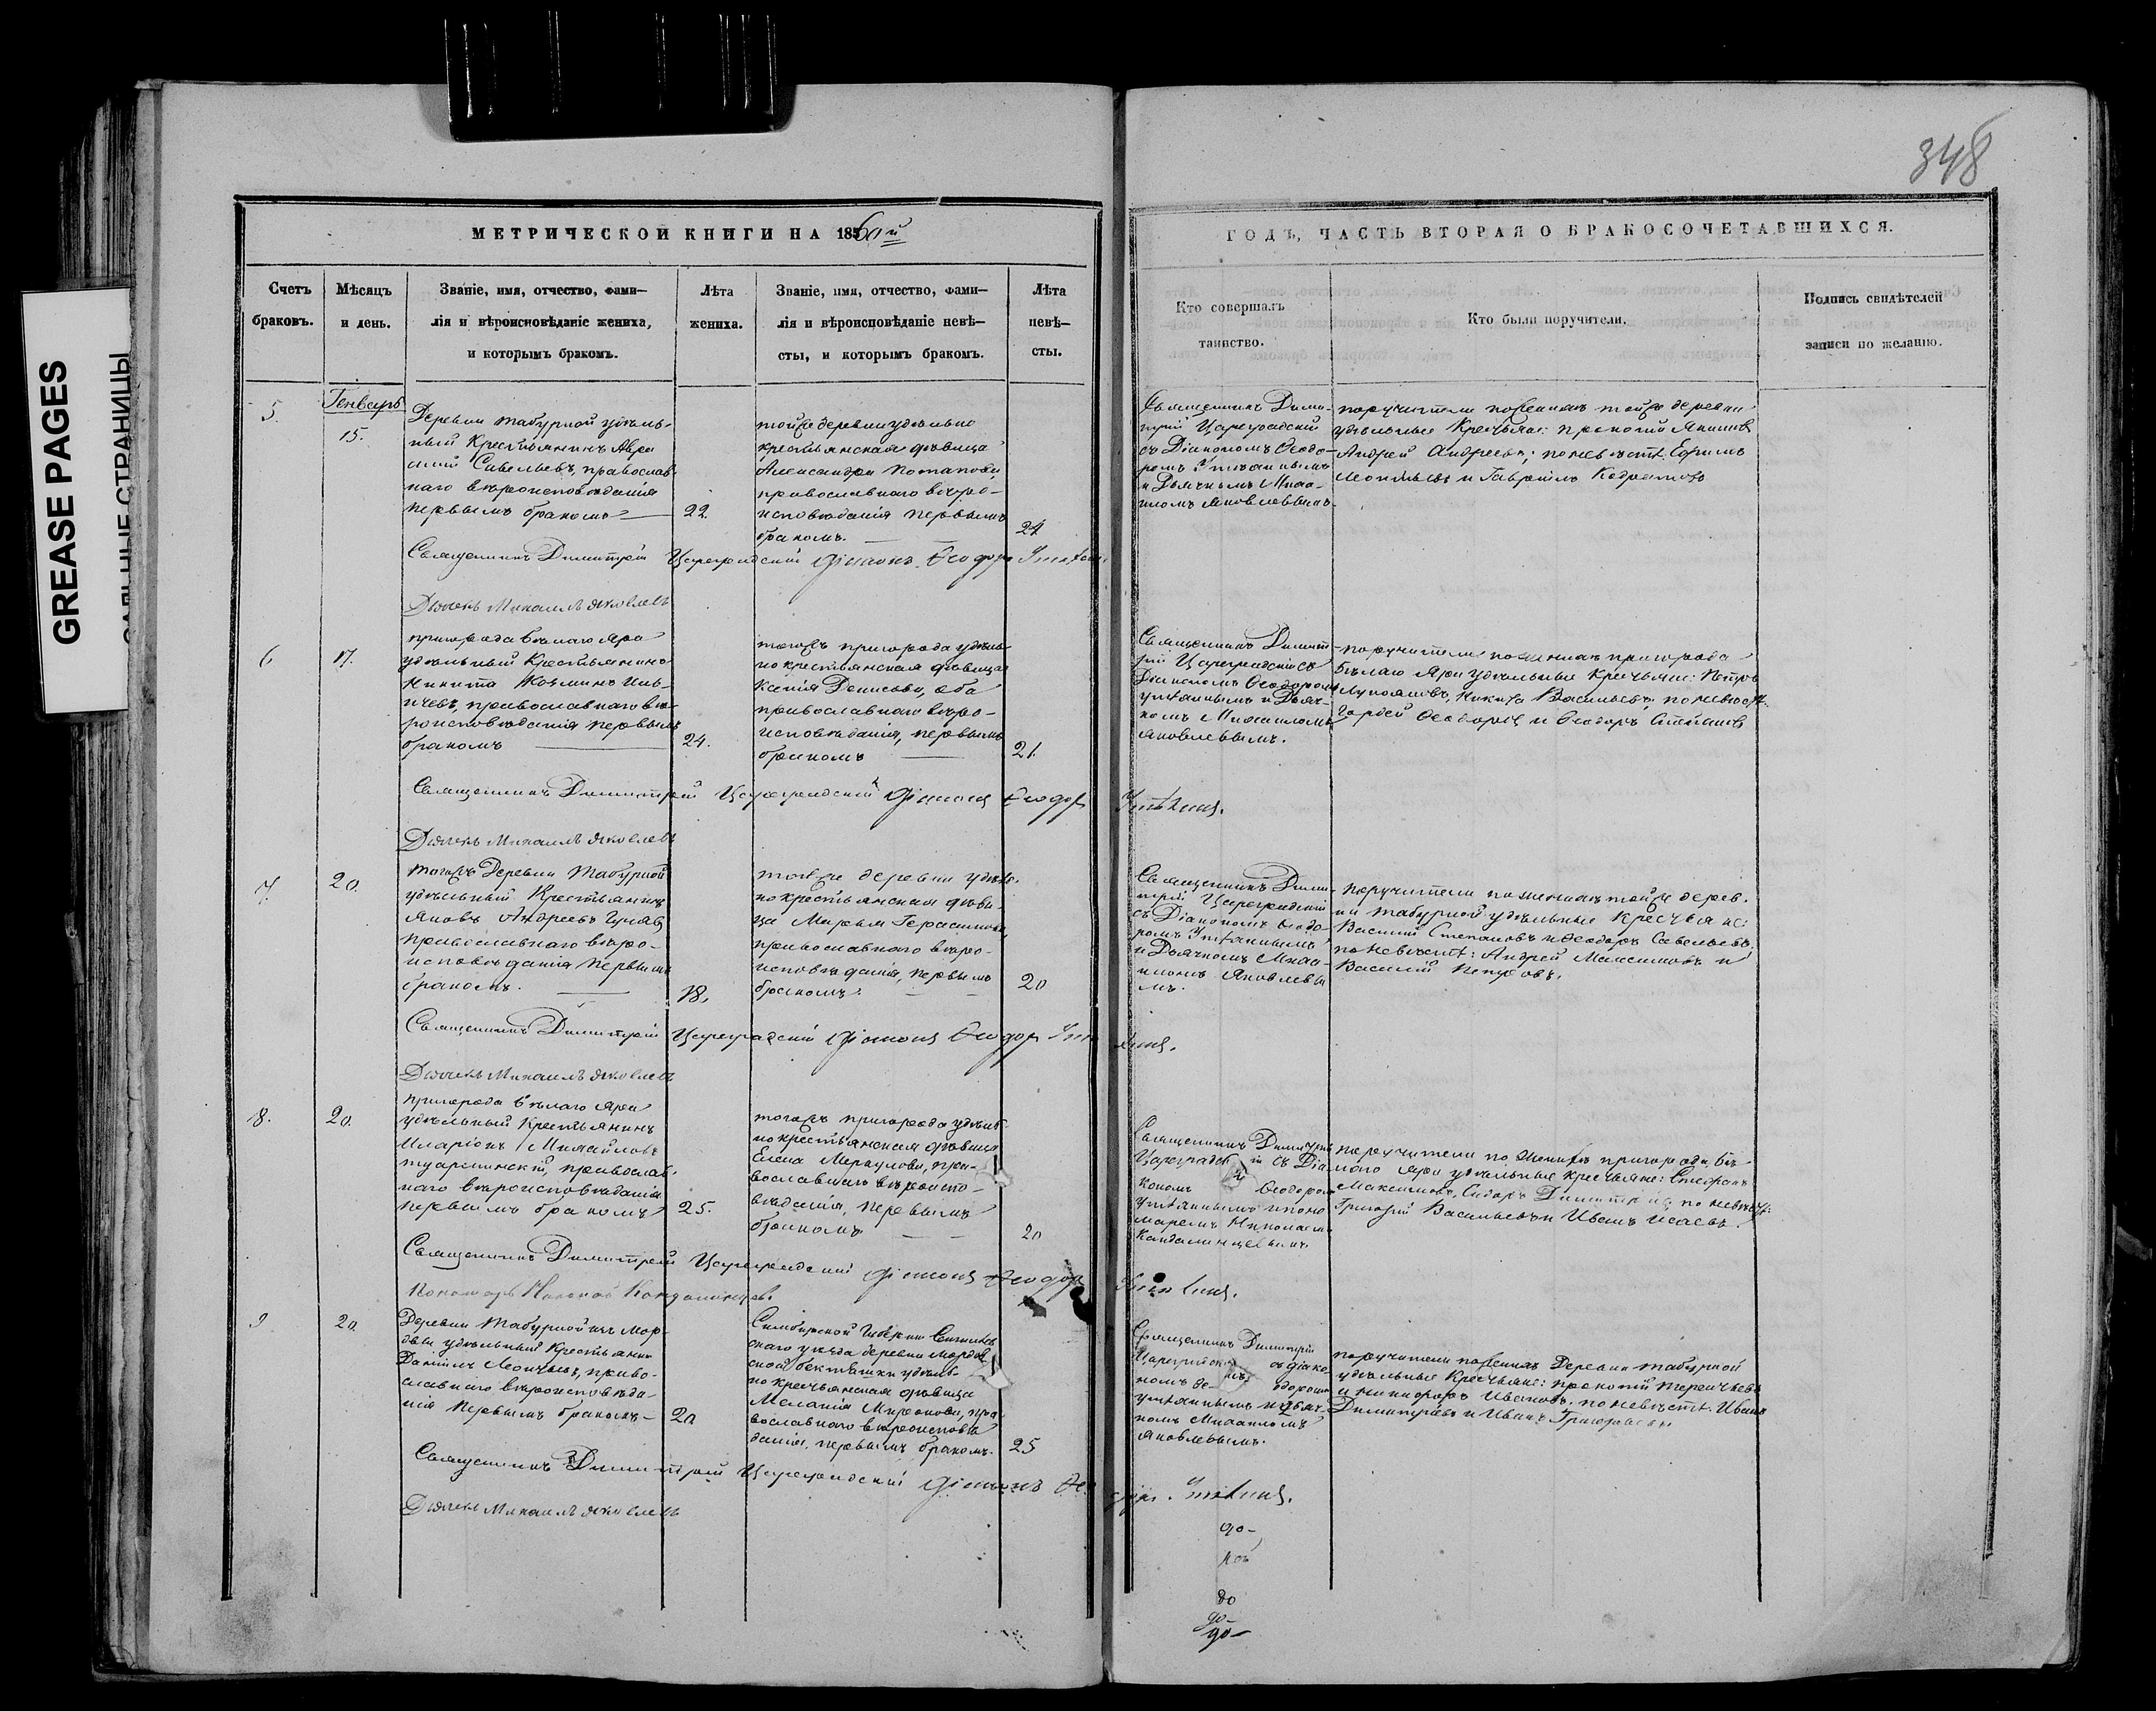 GREASE PAGES
САЛЬНЫЕ СТРАНИЦЫ
348
МЕТРИЧЕСКОЙ КНИГИ НА 1860й
Счетъ браковъ.
Мѣсяцъ и день.
Званіе, имя, отчество, фами-
лія и вѣроисповѣданіе жениха,
и которымъ бракомъ.
Лѣта жениха.
Званіе, имя, отчество, фами-
лія и вѣроисповѣданіе невѣ-
сты, и которымъ бракомъ.
Лѣта невѣ-
сты.
ГОДЪ, ЧАСТЬ ВТОРАЯ О БРАКОСОЧЕТАВШИХСЯ.
Кто совершалъ
таинство.
Кто были поручители.
Подпись свидѣтелей
записи по желанію.
5.
Генварь
15.
Деревни Табурной удѣль-
ный Крестьянинъ
Савельевъ, православ-
наго вѣроисповѣданія
первымъ бракомъ
22.
тойже деревни удѣльно
крестьянская дѣвица
Александра Потапова,
православнаго вѣро-
исповѣданія первымъ
бракомъ.
Священникъ Дими-
трій Цареградскій
съ Діакономъ Ѳеодо-
ромъ
и Дьячкомъ Михаи-
ломъ Яковлевымъ.
поручители по женихѣ тойже деревни
удѣльные Крестьяне: Прокопій
Андрей Андреевъ; по невѣстѣ: Ефимъ
Леонтьевъ и Гавріилъ
Священникъ Димитрій Цареградскій Діаконъ Ѳеодоръ
Дьячекъ Михаилъ Яковлевъ
6
17.
пригорода Бѣлаго Яра
удѣльный Крестьянинъ
Никита Козминъ
православнаго вѣ-
роисповѣданія первымъ
бракомъ
24.
тогожъ пригорода удѣль-
но крестьянская дѣвица
Ксенія Денисова, оба
православнаго вѣро-
исповѣданія, первымъ
бракомъ
21.
Священникъ Димит-
рій Цареградскій съ
Діакономъ Ѳеодоромъ
и Дьяч-
комъ Михаиломъ
Яковлевымъ.
поручители по женихѣ пригорода
Бѣлаго Яра удѣльные Крестьяне: Петръ
Никита Васильевъ; по невѣстѣ:
Гордей Ѳеодоровъ и Ѳеодоръ Степановъ
Священникъ Димитрій Цареградскій Діаконъ Ѳеодоръ
Дьячекъ Михаилъ Яковлевъ
7.
20.
тогожъ Деревни Табурной
удѣльный Крестьянинъ
Яковъ Андреевъ
православнаго вѣро-
исповѣданія первымъ
бракомъ.
18.
тойже деревни удѣль-
но крестьянская дѣви-
ца Марья Герасимова,
православнаго вѣро-
исповѣданія, первымъ
бракомъ.
20
Священникъ Дими-
трій Цареградскій
съ Діакономъ Ѳеодо-
ромъ
и Дьячкомъ Михаи-
ломъ Яковлевы
мъ.
поручители по женихѣ тойже дерев-
ни Табурной удѣльные Крестьяне:
Василій Степановъ и Ѳеодоръ Савельевъ;
по невѣстѣ: Андрей Максимовъ и
Василій
Священникъ Димитрій Цареградскій Діаконъ Ѳеодоръ
Дьячекъ Михаилъ Яковлевъ
8.
20.
пригорода Бѣлаго Яра
удѣльный Крестьянинъ
Иларіонъ Михайловъ
православ-
наго вѣроисповѣданія
первымъ бракомъ
25.
тогожъ пригорода удѣль-
но крестьянская дѣвица
Елена Меркулова, пра-
вославнаго вѣроиспо-
вѣданія, первымъ
бракомъ
20
Священникъ Димитрій
Цареградскій съ Діа-
кономъ Ѳеодоромъ
и поно-
маремъ Николаемъ
поручители по женихѣ пригорода Бѣ-
лаго Яра удѣльные Крестьяне: Стефанъ
Максимовъ, Сидоръ по невѣстѣ:
Григорій Васильевъ и Иванъ Исаевъ.
Священникъ Димитрій Цареградскій Діаконъ Ѳеодоръ
Пономарь Николай
9
20.
Деревни Табурной изъ Мор-
двы удѣльный Крестьянинъ
Даніилъ Леонтьевъ, право-
славнаго вѣроисповѣда-
нія первымъ бракомъ
20
Симбирской Губерніи
скаго уѣзда деревни Мордов-
ской Бектяшки удѣль-
но крестьянская дѣвица
Меланія Миронова, пра-
вославнаго вѣроисповѣ-
данія, первымъ бракомъ.
25
Священникъ Димитрій
съ діако-
номъ Ѳе- одоромъ
и дьяч-
комъ Михаиломъ
Яковлевымъ.
поручители по женихѣ Деревни Табурной
удѣльные Крестьяне: Прокопій Терентьевъ
и Никифоръ Ивановъ, по невѣстѣ: Иванъ
Димитріевъ и Иванъ Григорьевъ
Священникъ Димитрій Цареградскій Діаконъ
Дьячекъ Михаилъ Яковлевъ